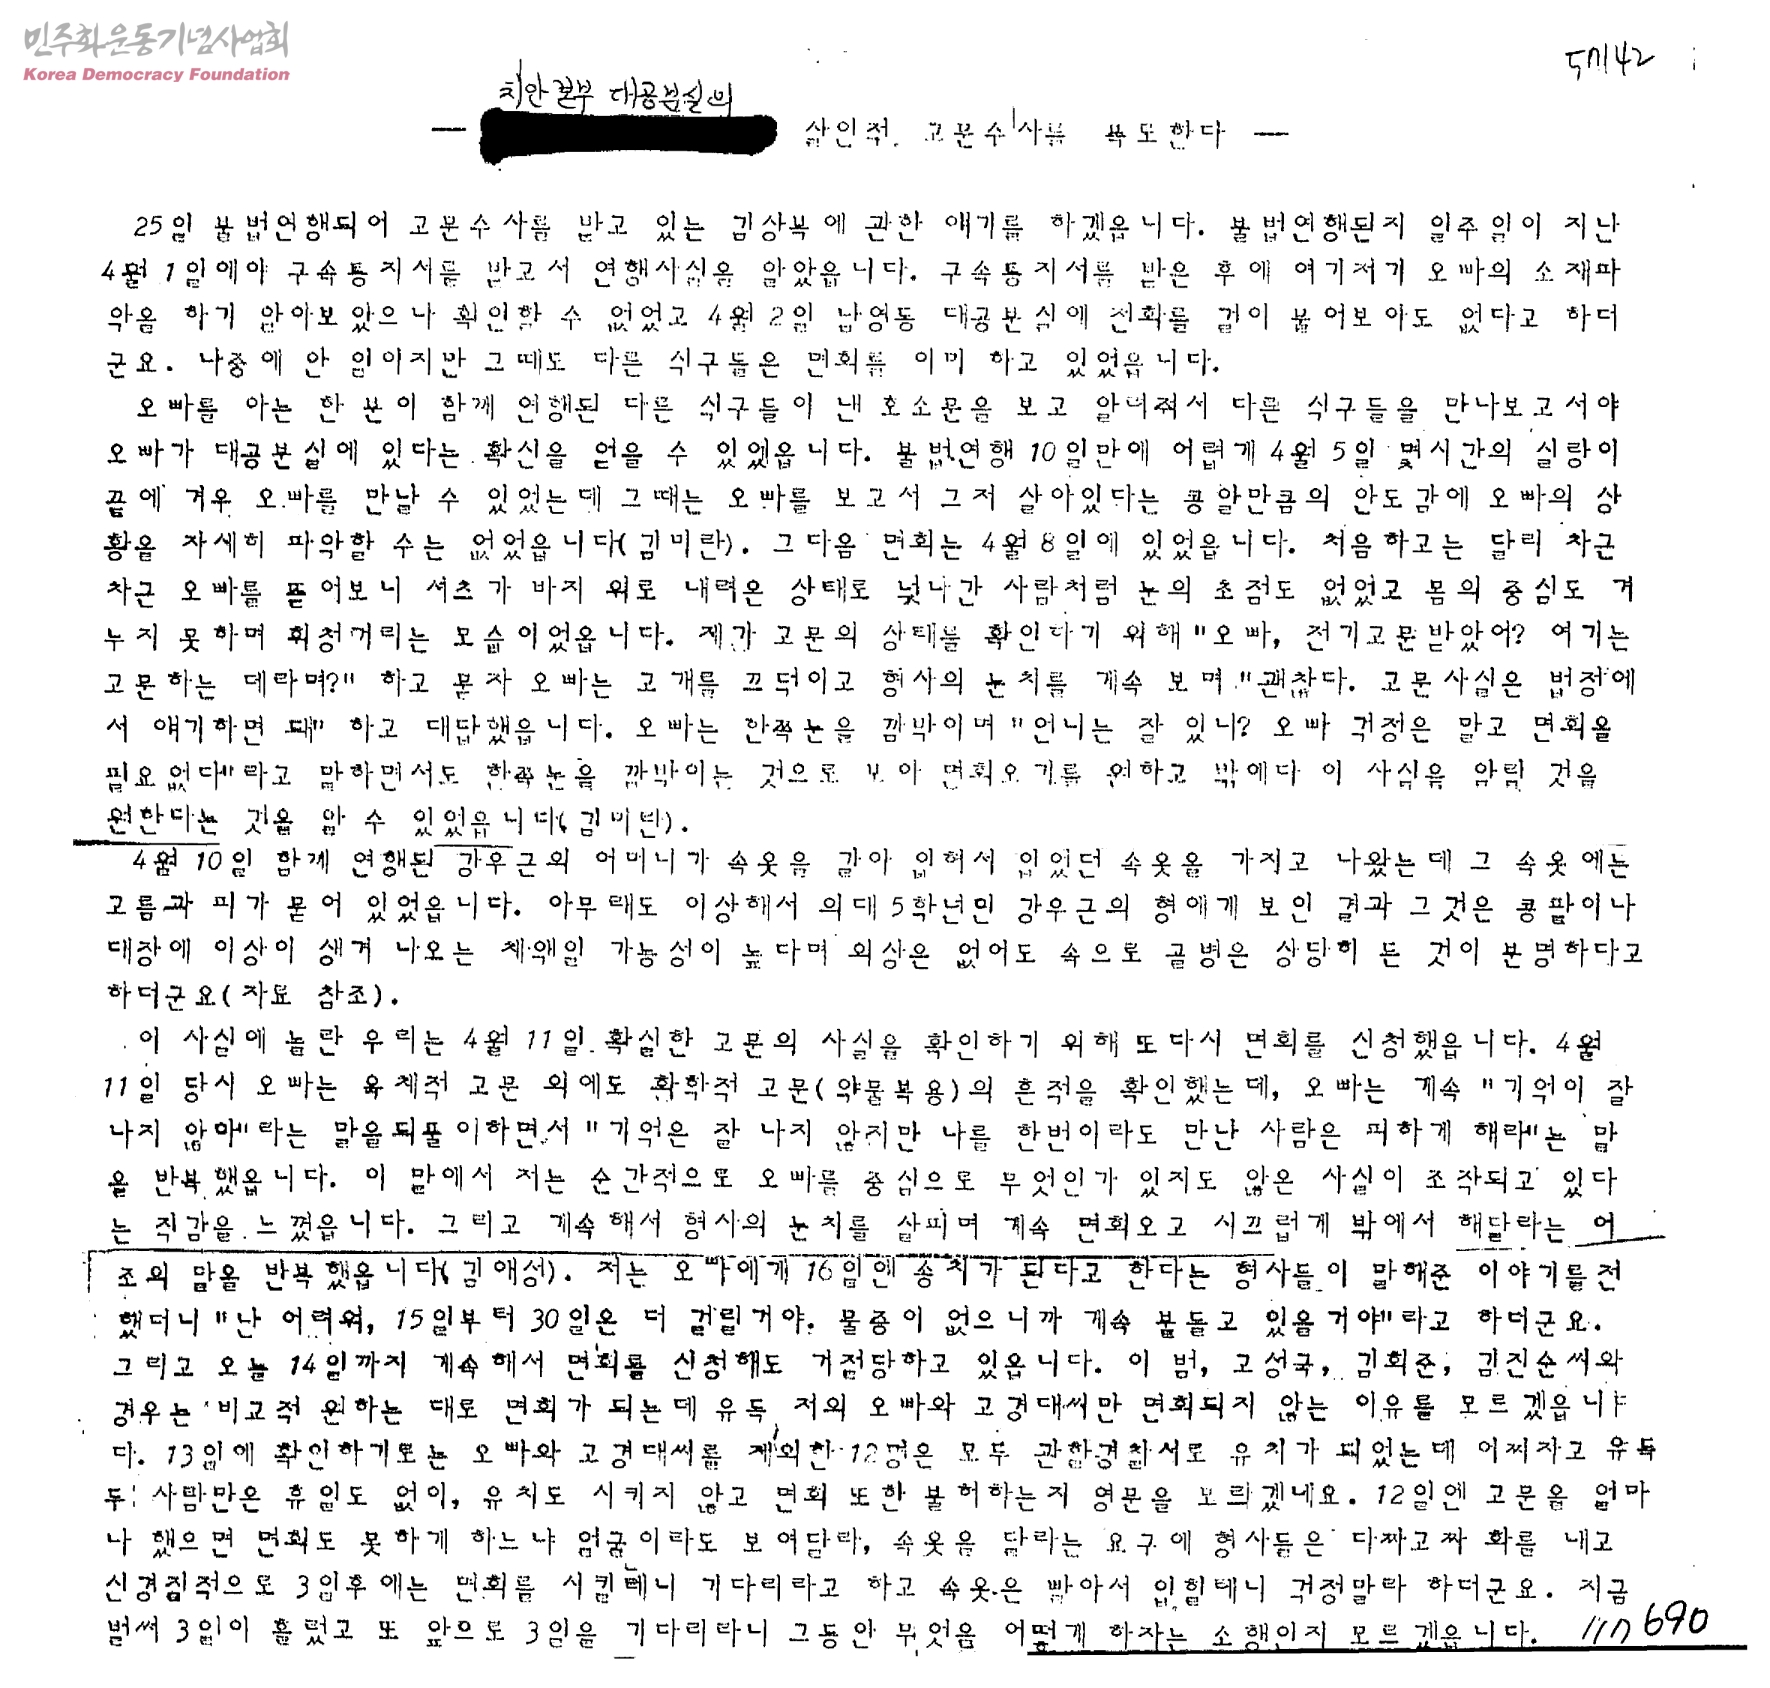 민주화운동기념사업회
Korea Democracy Foundation
치안본부 대공분실의
— 살인적 고문수사를 폭로한다 —
25일 불법연행되어 고문수사를 받고 있는 김상복에 관한 얘기를 하겠읍니다. 불법연행된지 일주일이 지난
4월 1일에야 구속통지서를 받고서 연행사실을 알았읍니다. 구속통지서를 받은 후에 여기저기 오빠의 소재파
악을 하기 알아보았으나 확인할 수 없었고 4월 2일 남영동 대공분실에 전화를 걸어 물어보아도 없다고 하더
군요. 나중에 안 일이지만 그때도 다른 식구들은 면회를 이미 하고 있었읍니다.
오빠를 아는 한 분이 함께 연행된 다른 식구들이 낸 호소문을 보고 알려줘서 다른 식구들을 만나보고서야
오빠가 대공분실에 있다는 확신을 얻을 수 있었읍니다. 불법연행 10일만에 어렵게 4월 5일 몇시간의 실랑이
끝에 겨우 오빠를 만날 수 있었는데 그때는 오빠를 보고서 그저 살아있다는 콩알만큼의 안도감에 오빠의 상
황을 자세히 파악할 수는 없었읍니다(김미란). 그다음 면회는 4월 8일에 있었읍니다. 처음하고는 달리 차근
차근 오빠를 뜯어보니 셔츠가 바지 위로 내려온 상태로 넋나간 사람처럼 눈의 초점도 없었고 몸의 중심도 겨
누지 못하며 휘청거리는 모습이었읍니다. 제가 고문의 상태를 확인하기 위해 "오빠, 전기고문받았어? 여기는
고문하는 데라며?" 하고 묻자 오빠는 고개를 끄덕이고 형사의 눈치를 계속 보며 "괜찮다. 고문사실은 법정에
서 얘기하면 돼" 하고 대답했읍니다. 오빠는 한쪽눈을 깜박이며 "언니는 잘 있니? 오빠 걱정은 말고 면회올
필요없다"라고 말하면서도 한쪽눈을 깜박이는 것으로 보아 면회오기를 원하고 밖에다 이 사실을 알릴 것을
원한다는 것을 알 수 있었읍니다(김미란).
4월 10일 함께 연행된 강우근의 어머니가 속옷을 갈아 입혀서 입었던 속옷을 가지고 나왔는데 그 속옷에는
고름과 피가 묻어 있었읍니다. 아무래도 이상해서 의대 5학년인 강우근의 형에게 보인 결과 그것은 콩팥이나
대장에 이상이 생겨 나오는 체액일 가능성이 높다며 외상은 없어도 속으로 골병은 상당히 든 것이 분명하다고
하더군요(자료 참조).
이 사실에 놀란 우리는 4월 11일 확실한 고문의 사실을 확인하기 위해 또다시 면회를 신청했읍니다. 4월
11일 당시 오빠는 육체적 고문 외에도 화학적 고문(약물복용)의 흔적을 확인했는데, 오빠는 계속 "기억이 잘
나지 않아"라는 말을 되풀이하면서 "기억은 잘 나지 않지만 나를 한번이라도 만난 사람은 피하게 해라"는 말
을 반복했읍니다. 이 말에서 저는 순간적으로 오빠를 중심으로 무엇인가 있지도 않은 사실이 조작되고 있다
는 직감을 느꼈읍니다. 그리고 계속해서 형사의 눈치를 살피며 계속 면회오고 시끄럽게 밖에서 해달라는 어
조의 말을 반복했읍니다(김애성). 저는 오빠에게 16일엔 송치가 된다고 한다는 형사들이 말해준 이야기를 전
했더니 "난 어려워, 15일부터 30일은 더 걸릴거야. 물증이 없으니까 계속 붙들고 있을거야"라고 하더군요.
그리고 오늘 14일까지 계속해서 면회를 신청해도 거절당하고 있읍니다. 이 범, 고성국, 김희준, 김진순씨와
경우는 비교적 원하는 대로 면회가 되는데 유독 저의 오빠와 고경대씨만 면회되지 않는 이유를 모르겠읍니
다. 13일에 확인하기로는 오빠와 고경대씨를 제외한 12명은 모두 관할경찰서로 유치가 되었는데 어찌자고 유독
두 사람만은 휴일도 없이, 유치도 시키지 않고 면회 또한 불허하는지 영문을 모르겠네요. 12일엔 고문을 얼마
나 했으면 면회도 못하게 하느냐 얼굴이라도 보여달라, 속옷을 달라는 요구에 형사들은 다짜고짜 화를 내고
신경질적으로 3일후에는 면회를 시킬테니 기다리라고 하고 속옷은 빨아서 입힐테니 걱정말라 하더군요. 지금
벌써 3일이 흘렀고 또 앞으로 3일을 기다리라니 그동안 무엇을 어떻게 하자는 소행인지 모르겠읍니다.
690